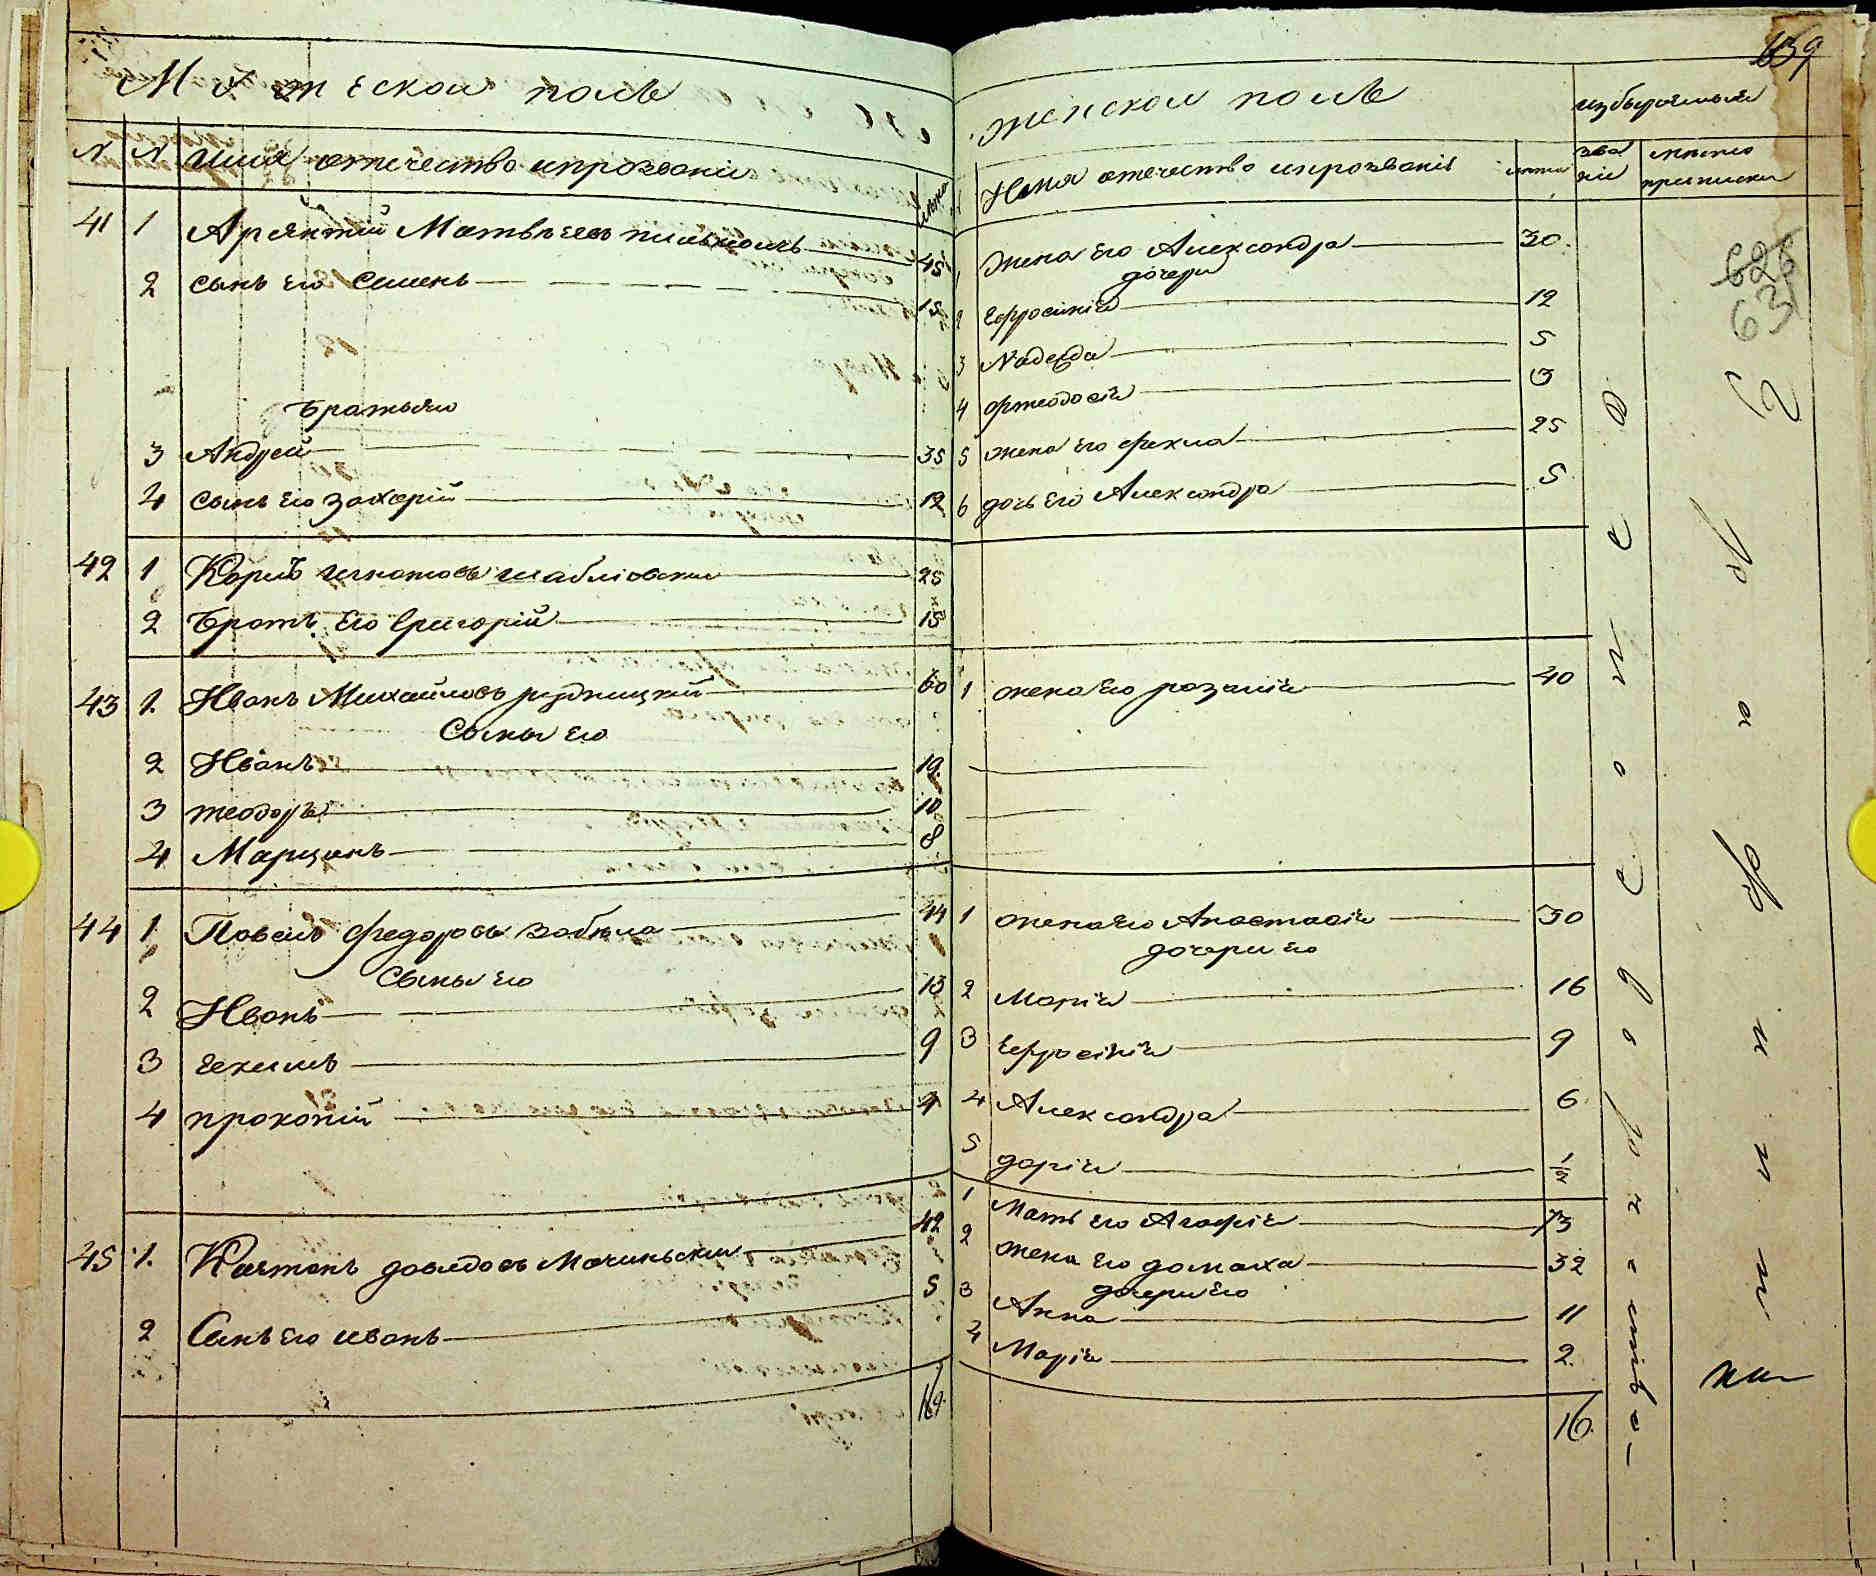 Мужескои полъ
N N имя отечество ипрозвание лѣта
41 1 Арсентий Матвъевъ 45
2 сынъ его Семенъ 15
братья
3 Андрей 35
4 сынъ его захарій 12
42 1 Карпъ игнатовъ шаблiовски 25
2 братъ его Григорій 15
43 1. Иванъ Михайловъ рудницкий 60
Сыны его
2 Иванъ 19
3 теодоръ 10
4 Марцинъ 8
44 1. Павелъ федоровъ забила 44
Сыны его
2 Иванъ 13
3 екимъ 9
4 прокопій 4
45 1. Каетанъ давидовъ Мачиньски 42
2 Сынъ его иванъ 5
16
женскои полъ избыраемыи 639
Имя отечество ипрозваніе лѣта зва ніе место приписки
1 Жена его Александра 30.
дочери
2 ефросинія 12 626
3 Надежда 5 631
4 фтеодосія
5 жена его фекла 25
6 дочь его Александра 5
1 жена его розалія 40
1 жена его Анастасія 30
дочери его
2 Марія 16
3 ефросінія 9
4 Александра 6
5 дарія 1/2
1 Мать его Агафія 73
2 жена его домаха 32
дочери его
3 Анна 11
4 Марія 2
16